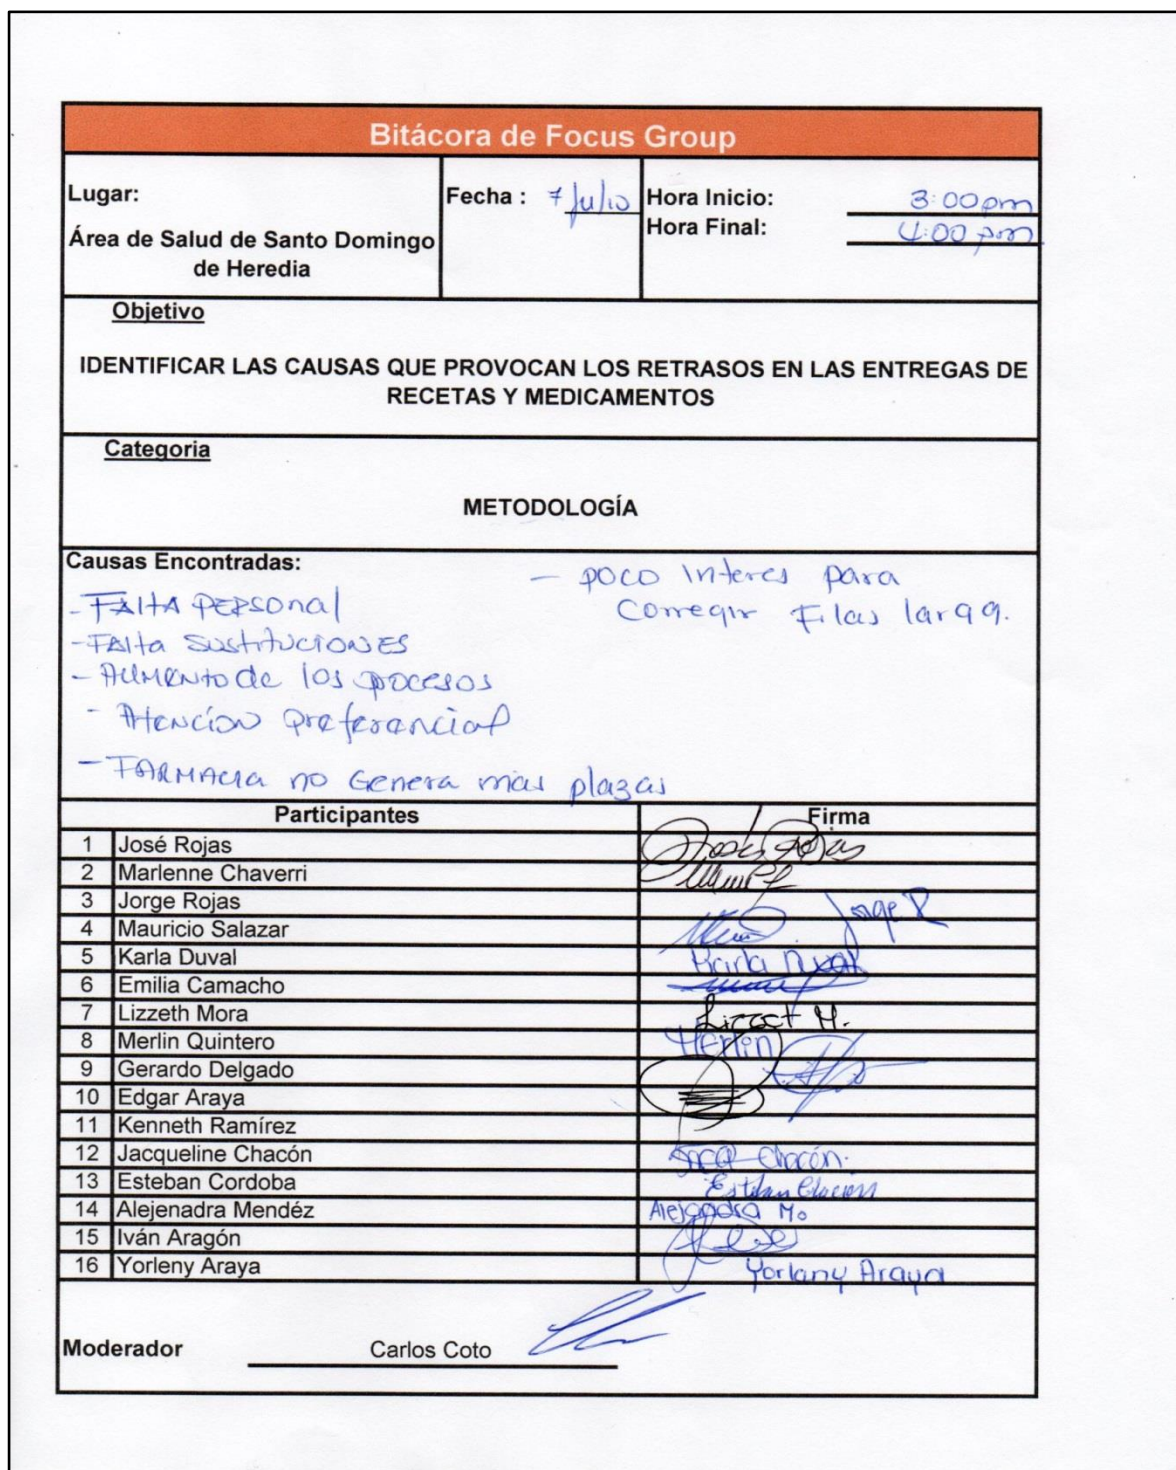 Bitácora de Focus Group
Lugar:
Área de Salud de Santo Domingo
de Heredia
Fecha : 7 Julio
Hora Inicio: 3:00pm
Hora Final: 4:00 pm
Objetivo
IDENTIFICAR LAS CAUSAS QUE PROVOCAN LOS RETRASOS EN LAS ENTREGAS DE
RECETAS Y MEDICAMENTOS
Categoria
METODOLOGÍA
Causas Encontradas:
- FAltA PERSonal
- FAlta SustitucioNES
- AUMENto de los procesos
- Atención preferencial
- FARMAcia no Genera mas plazas
- poco Interes para
Corregir Filas larga.
Participantes Firma
1 José Rojas José Rojas
2 Marlenne Chaverri
3 Jorge Rojas Jorge R
4 Mauricio Salazar
5 Karla Duval Karla Duval
6 Emilia Camacho
7 Lizzeth Mora Lizzet M.
8 Merlin Quintero Merlin
9 Gerardo Delgado
10 Edgar Araya
11 Kenneth Ramírez
12 Jacqueline Chacón Chacón.
13 Esteban Cordoba Esteban
14 Alejenadra Mendéz Alejandra M.
15 Iván Aragón
16 Yorleny Araya Yorlany Araya
Moderador Carlos Coto